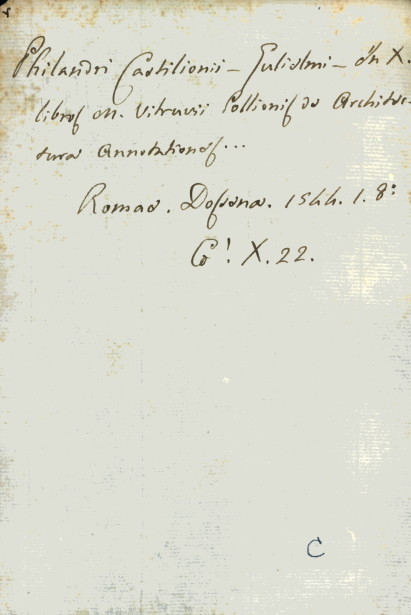 Philandri Castilionii - Gulielmi - In X.
libros M. Vitruvii Pollionis de Architec-
tura Annotationes...
Romae. Dossena. 1544. 1. 8:
Co! X. 22.
C